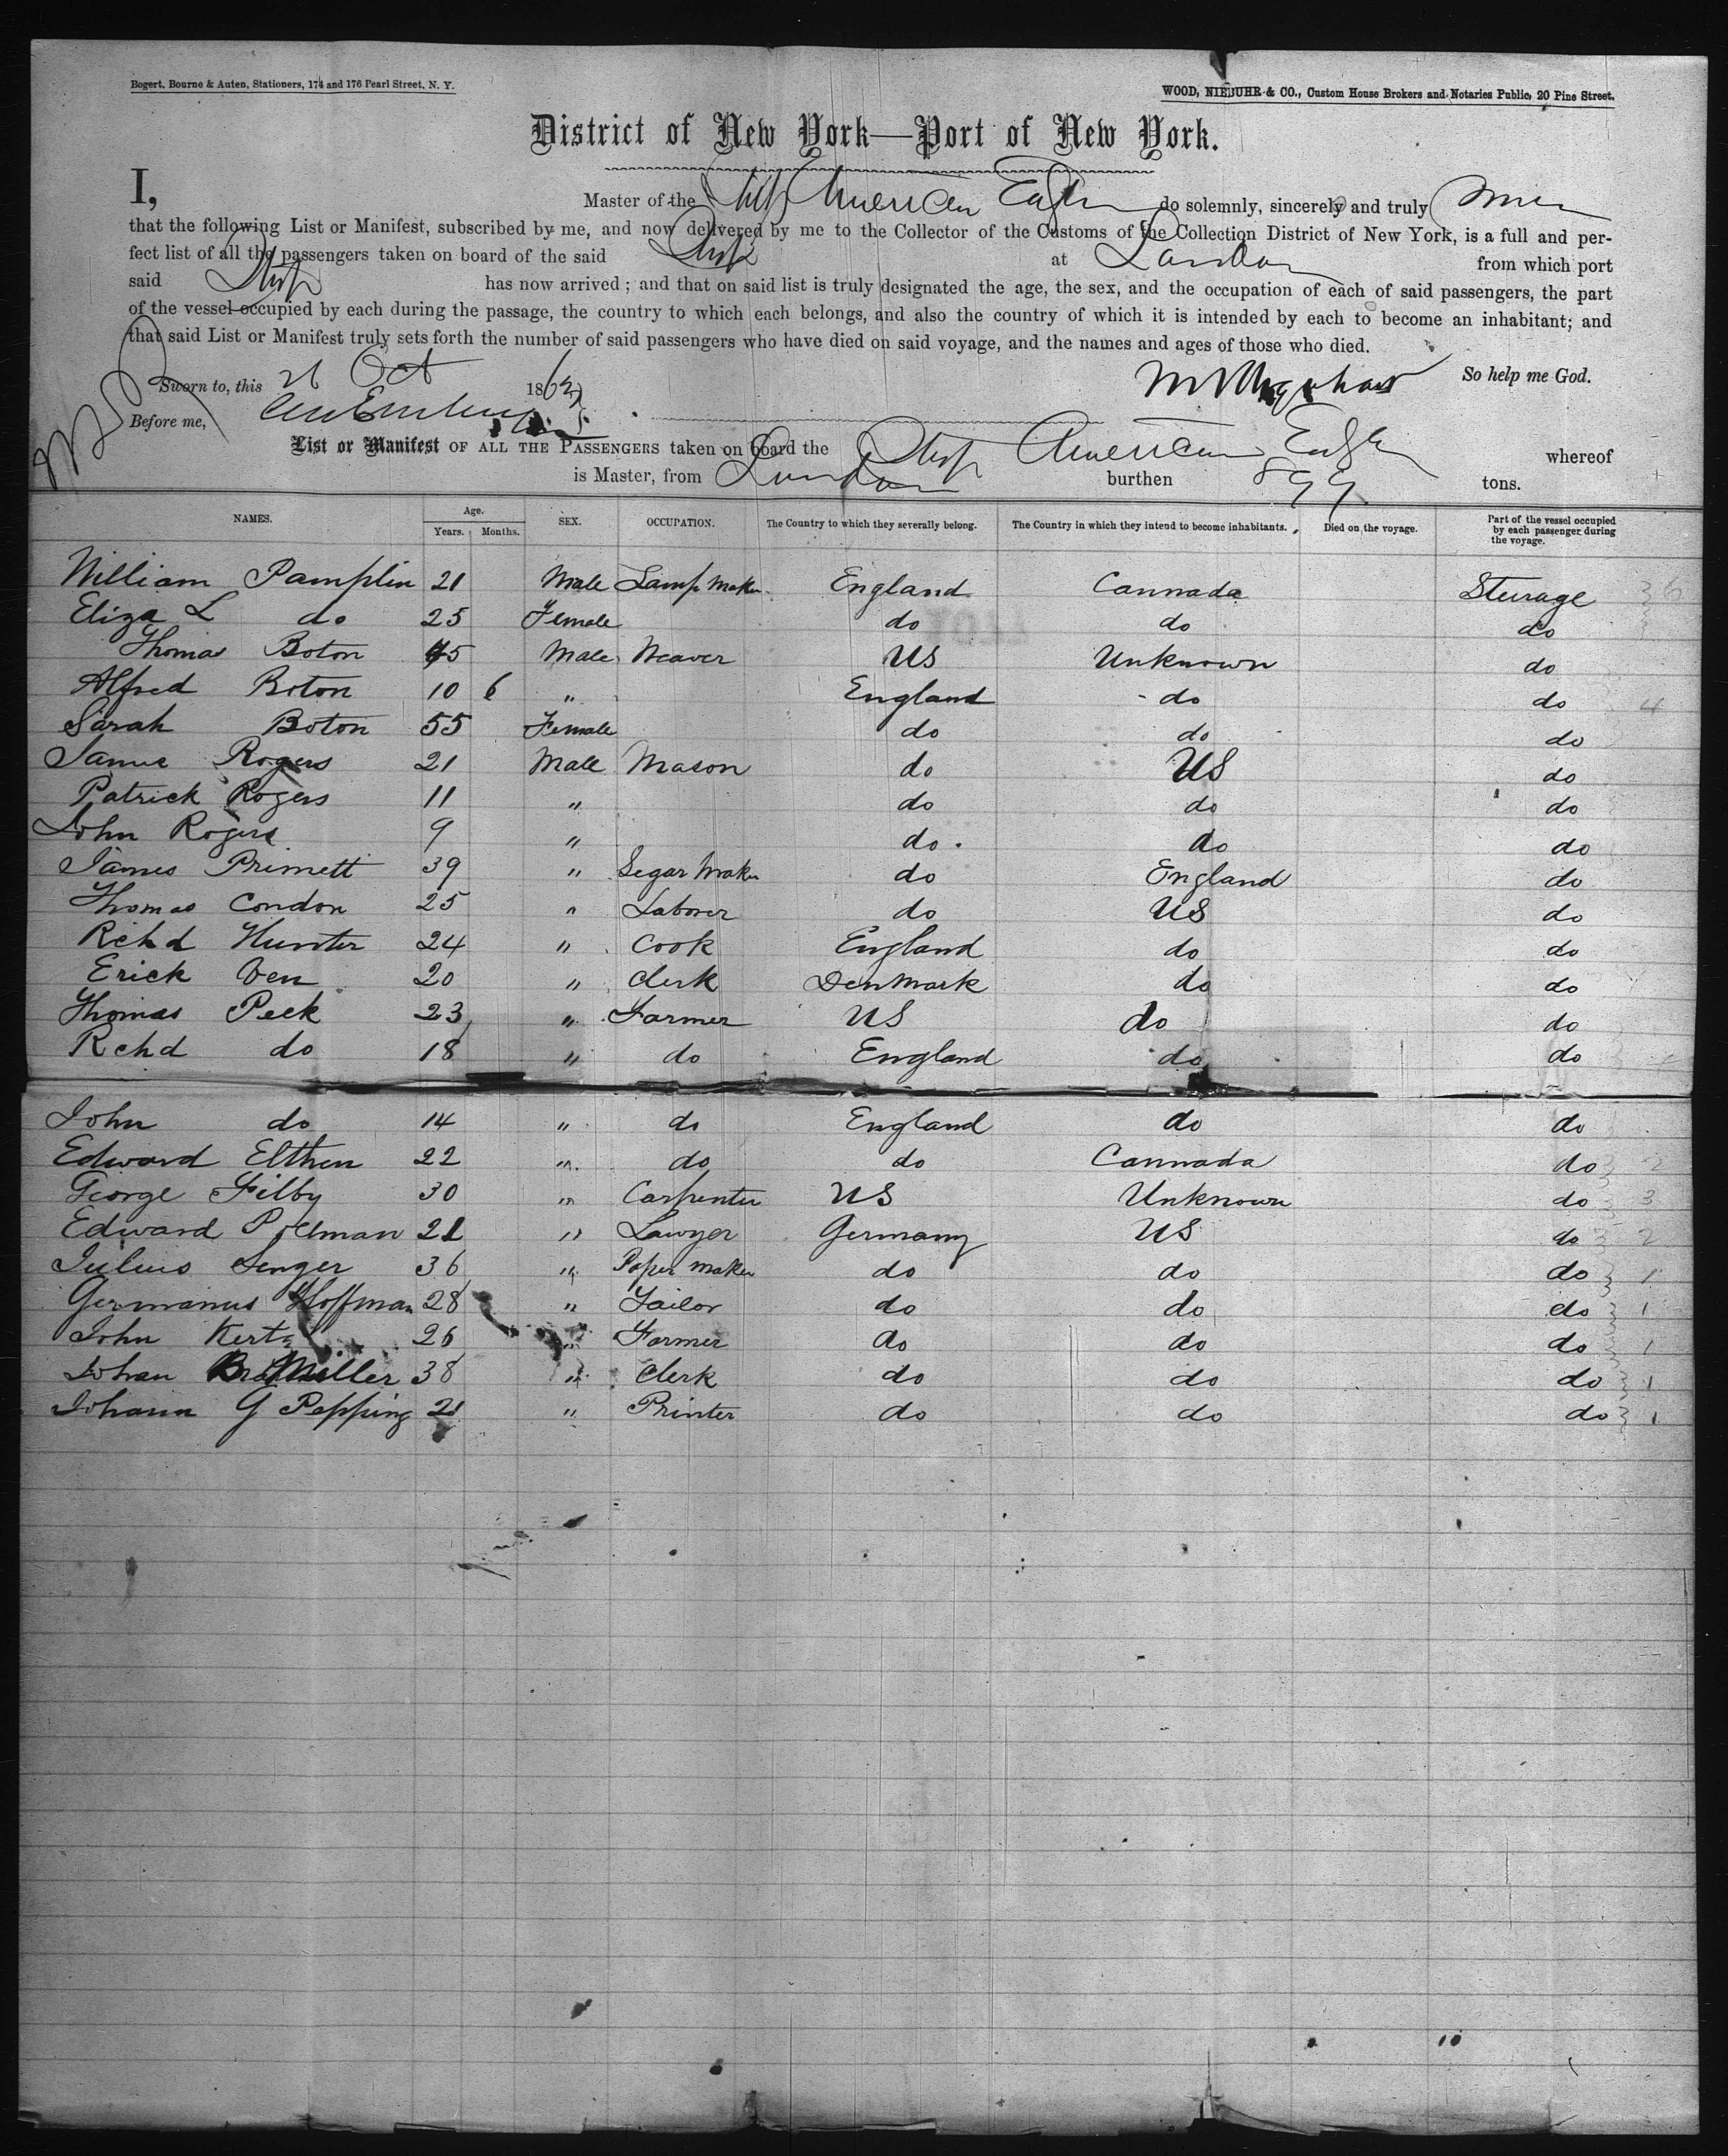 Bogert, Bourne & Auten, Stationers, 174 and 176 Pearl Street, N. Y.
WOOD, NIEBUHR & CO., Custom House Brokers and Notaries Public, 20 Pine Street.
District of New York—Port of New York.
I, Master of the Ship American Eagle do solemnly, sincerely and truly swear
that the following List or Manifest, subscribed by me, and now delivered by me to the Collector of the Customs of the Collection District of New York, is a full and per-
fect list of all the passengers taken on board of the said Ship at London from which port
said Ship has now arrived; and that on said list is truly designated the age, the sex, and the occupation of each of said passengers, the part
of the vessel occupied by each during the passage, the country to which each belongs, and also the country of which it is intended by each to become an inhabitant; and
that said List or Manifest truly sets forth the number of said passengers who have died on said voyage, and the names and ages of those who died.
Sworn to, this 26 Oct 186 So help me God.
Before me,
List or Manifest OF ALL THE PASSENGERS taken on board the Ship American Eagle whereof
is Master, from London burthen 899 tons.
NAMES. Age. Years. Months. SEX. OCCUPATION. The Country to which they severally belong. The Country in which they intend to become inhabitants. Died on the voyage. Part of the vessel occupied by each passenger during the voyage.
William Pamplin 21 Male Lamp Maker England Cannada Steerage
Eliza L do 25 Female do do do
Thomas Boton 45 Male Weaver US Unknown do
Alfred Boton 10 6 " England do do 4
Sarah Boton 55 Female do do do
James Rogers 21 Male Mason do US do
Patrick Rogers 11 " do do do
John Rogers 9 " do. do do
James Primett 39 " Segar Maker do England do
Thomas Condon 25 " Laborer do US do
Richd Hunter 24 " Cook England do do
Erick Ven 20 " Clerk Denmark do do
Thomas Peek 23 " Farmer US do do
Richd do 18 " do England do do
John do 14 " do England do do
Edward Elthen 22 " do do Cannada do 2
George Filby 30 " Carpenter US Unknown do 3
Edward Pollman 21 " Lawyer Germany US do 2
Julius Senger 36 " Paper Maker do do do 1
Germanus Hoffman 28 " Tailor do do do 1
John Kertz 26 " Farmer do do do 1
Johan Miller 38 " Clerk do do do 1
Johann G Pepping 21 " Printer do do do 1